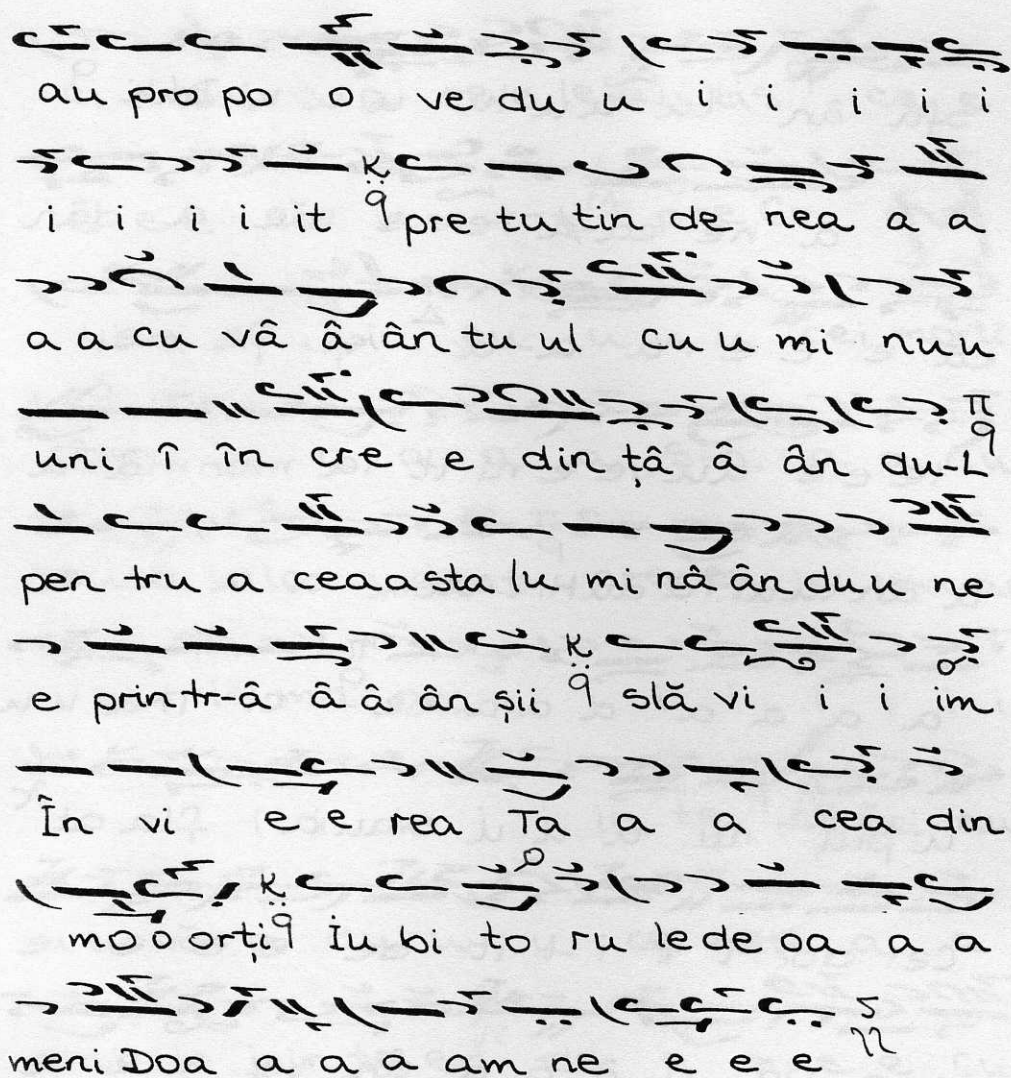 au pro po o ve du u i i i i i
i i i i it pre tu tin de nea a a
a a cu vâ â ân tu ul cu u mi nuu
uni î în cre e din ţâ â ân du-L
pen tru a ceaa sta lu mi nâ ân duu ne
e printr-â â â ân şii slă vi i i im
În vi e e rea Ta a a cea din
mo o orţi Iu bi to ru le de oa a a
meni Doa a a a am ne e e e